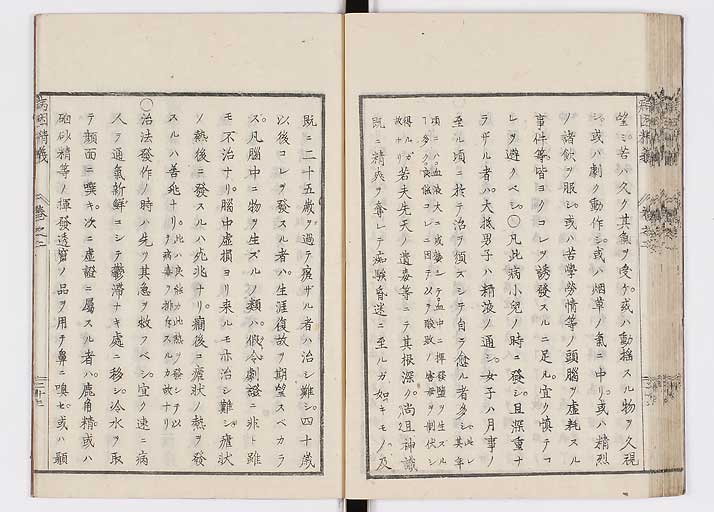 望ミ苦シハ久ク其氣ヲ受ケ。或ハ動搖スル物ヲ久視
シ。或ハ劇ク動作シ。或ハ烟草ノ氣ニ中リ。或ハ精烈
ノ諸飲ヲ服シ。或ハ苦學勞情等ノ頭腦ヲ虚耗スル
事件。等皆ヨクコレヲ誘發スルニ足ル。宜ク愼テコ
レヲ避クベシ。〇凡此病小兒ノ時ニ發シ。且深重ナ
ラザル者ハ。大抵男子ハ精液ノ通シ。女子ハ月事ノ
至ル頃ニ於テ治ヲ須ズシテ自ラ愈ル者多シ。此レ其年
頃ニハ血液大ニ成熟シテ血中ニ揮發鹽ヲ生スル
多ク良能コレニ因テ以ヲ酸敗ノ害毒ヲ制伏シ
得ルガ故ナリ
若夫先天ノ遺毒等ニテ其根深ク。尚且神識
既ニ精爽ヲ奪レテ痴騃昏迷ニ至ルガ如キモノ。及
既ニ二十五歲ヲ過テ瘥ザル者ハ治シ難シ。四十歲
以後コレヲ發スル者ハ。生涯復故ヲ期望スベカラ
ズ。凡腦中ニ物ヲ生ズルノ類ハ。假令劇證ニ非ト雖
モ不治ナリ。腦中虚損ヨリ来ルモ亦治シ難シ。瘧状
ノ熱後ニ發スルハ死兆ナリ。癇後ニ瘧状ノ熱ヲ發
スルハ善兆ナリ。此ハ良能力此熱ヲ發シテ以テ病毒ヲ排斥スルカ故ナリ
〇治法發作ノ時ハ先ヲ其急ヲ救フベシ。宜ク速ニ病
人ヲ通氣新鮮コシテ鬱滞ナキ處ニ移シ。冷水ヲ取
テ顔面ニ噀キ。次ニ虚證ニ屬スル者ハ。鹿角精或ハ
硇砂精等ノ揮發透竄ノ品ヲ用テ鼻ニ嗅セ。或ハ顳
病因精義
卷之二
二十三